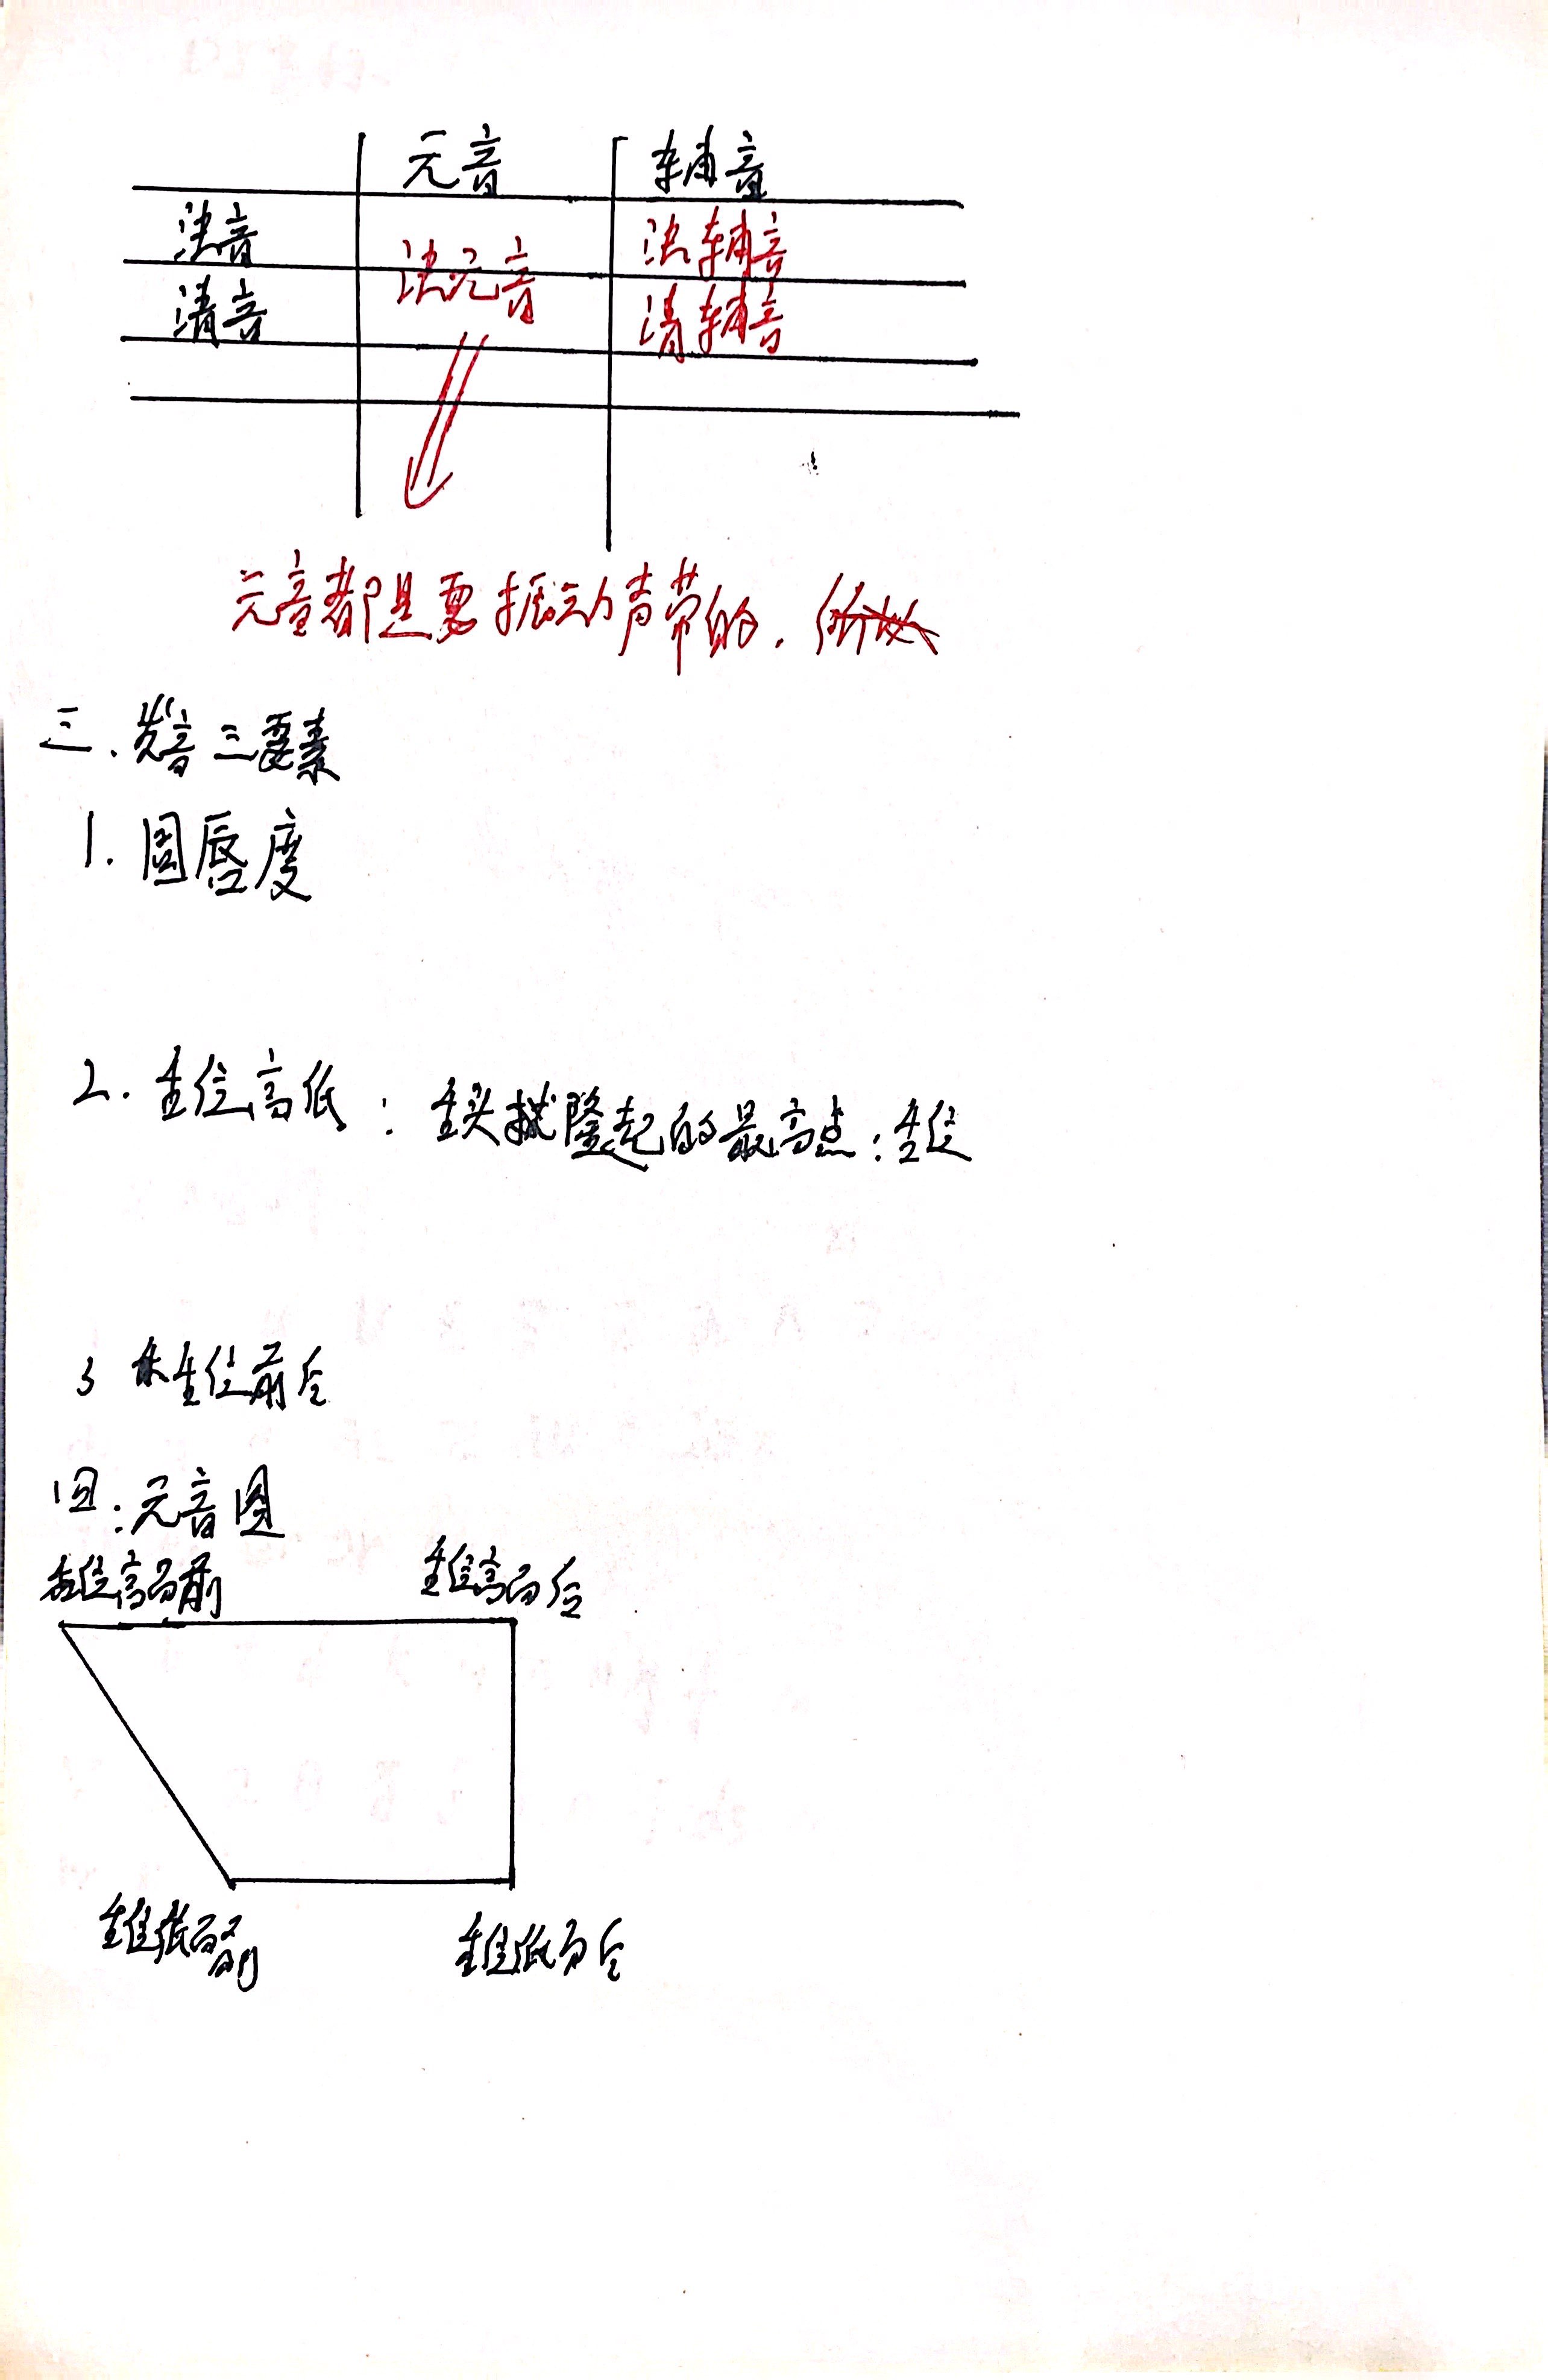 元音 辅音
浊音 浊元音 浊辅音
清音 清辅音
元音都是要振动声带的.
三.发音三要素
1.圆唇度
2.舌位高低:舌头拱隆起的最高点:舌位
3 舌位前后
四:元音图
舌位高而前 舌位高而后
舌位低而前 舌位低而后